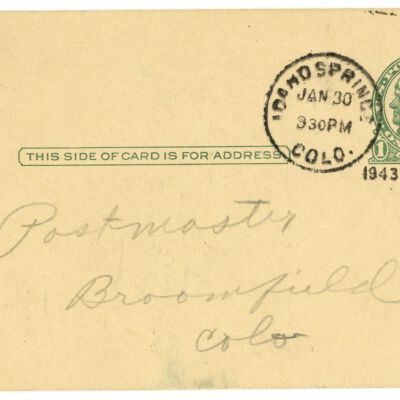 IDAHO SPRINGS
JAN 30
330PM
COLO.
1943
1
THIS SIDE OF CARD IS FOR ADDRESS
Postmaster
Broomfield
Colo